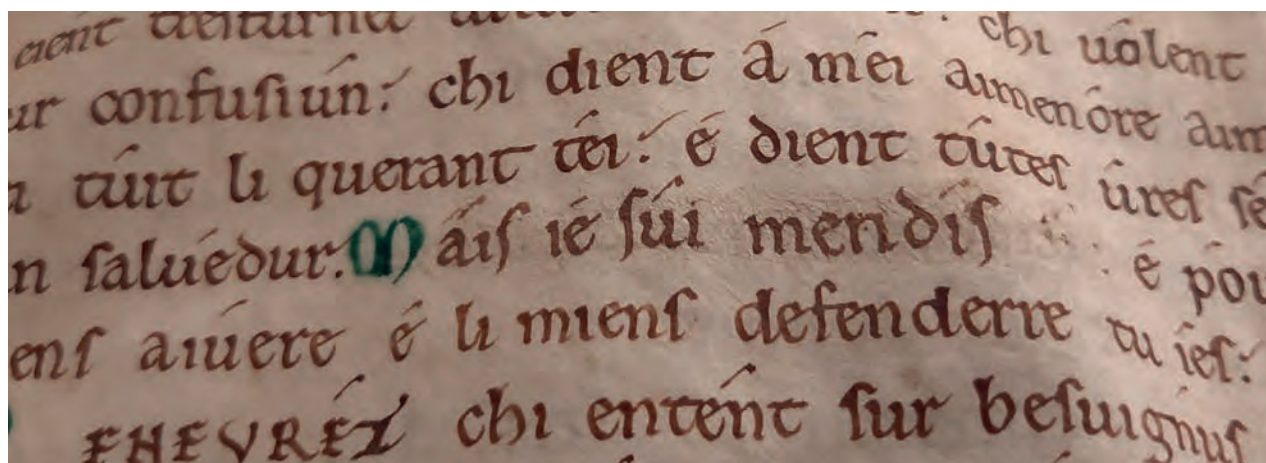 chi uólent
ur confusiun: chi dient á méi aimenóre aim
tuit li querant téi: é dient tútes úres sé
n saluédur. Máis ié súi mendis é pou
ens aiuere é li miens defenderre tu ies:
EHEVRÉZ chi entent sur besuignus